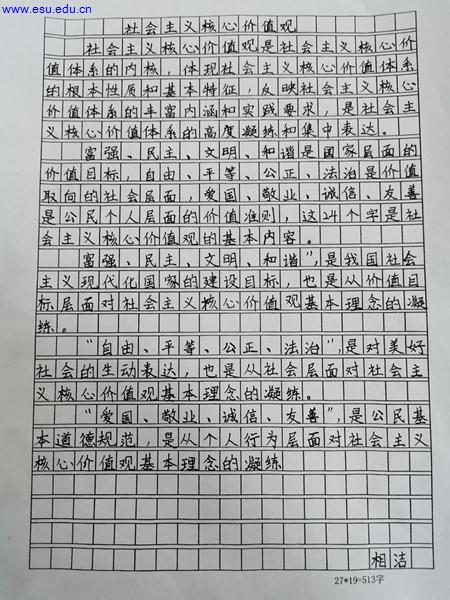 www.esu.edu.cn
社会主义核心价值观
社会主义核心价值观是社会主义核心价
值体系的内核，体现社会主义核心价值体系
的根本性质和基本特征，反映社会主义核心
价值体系的丰富内涵和实践要求，是社会主
义核心价值体系的高度凝练和集中表达。
富强、民主、文明、和谐是国家层面的
价值目标，自由、平等、公正、法治是价值
取向的社会层面，爱国、敬业、诚信、友善
是公民个人层面的价值准则，这24个字是社
会主义核心价值观的基本内容。
富强、民主、文明、和谐”，是我国社会
主义现代化国家的建设目标，也是从价值目
标层面对社会主义核心价值观基本理念的凝
练。
“自由、平等、公正、法治”，是对美好
社会的生动表达，也是从社会层面对社会主
义核心价值观基本理念的凝练。
“爱国、敬业、诚信、友善”，是公民基
本道德规范，是从个人行为层面对社会主义
核心价值观基本理念的凝练
相洁
27*19=513字